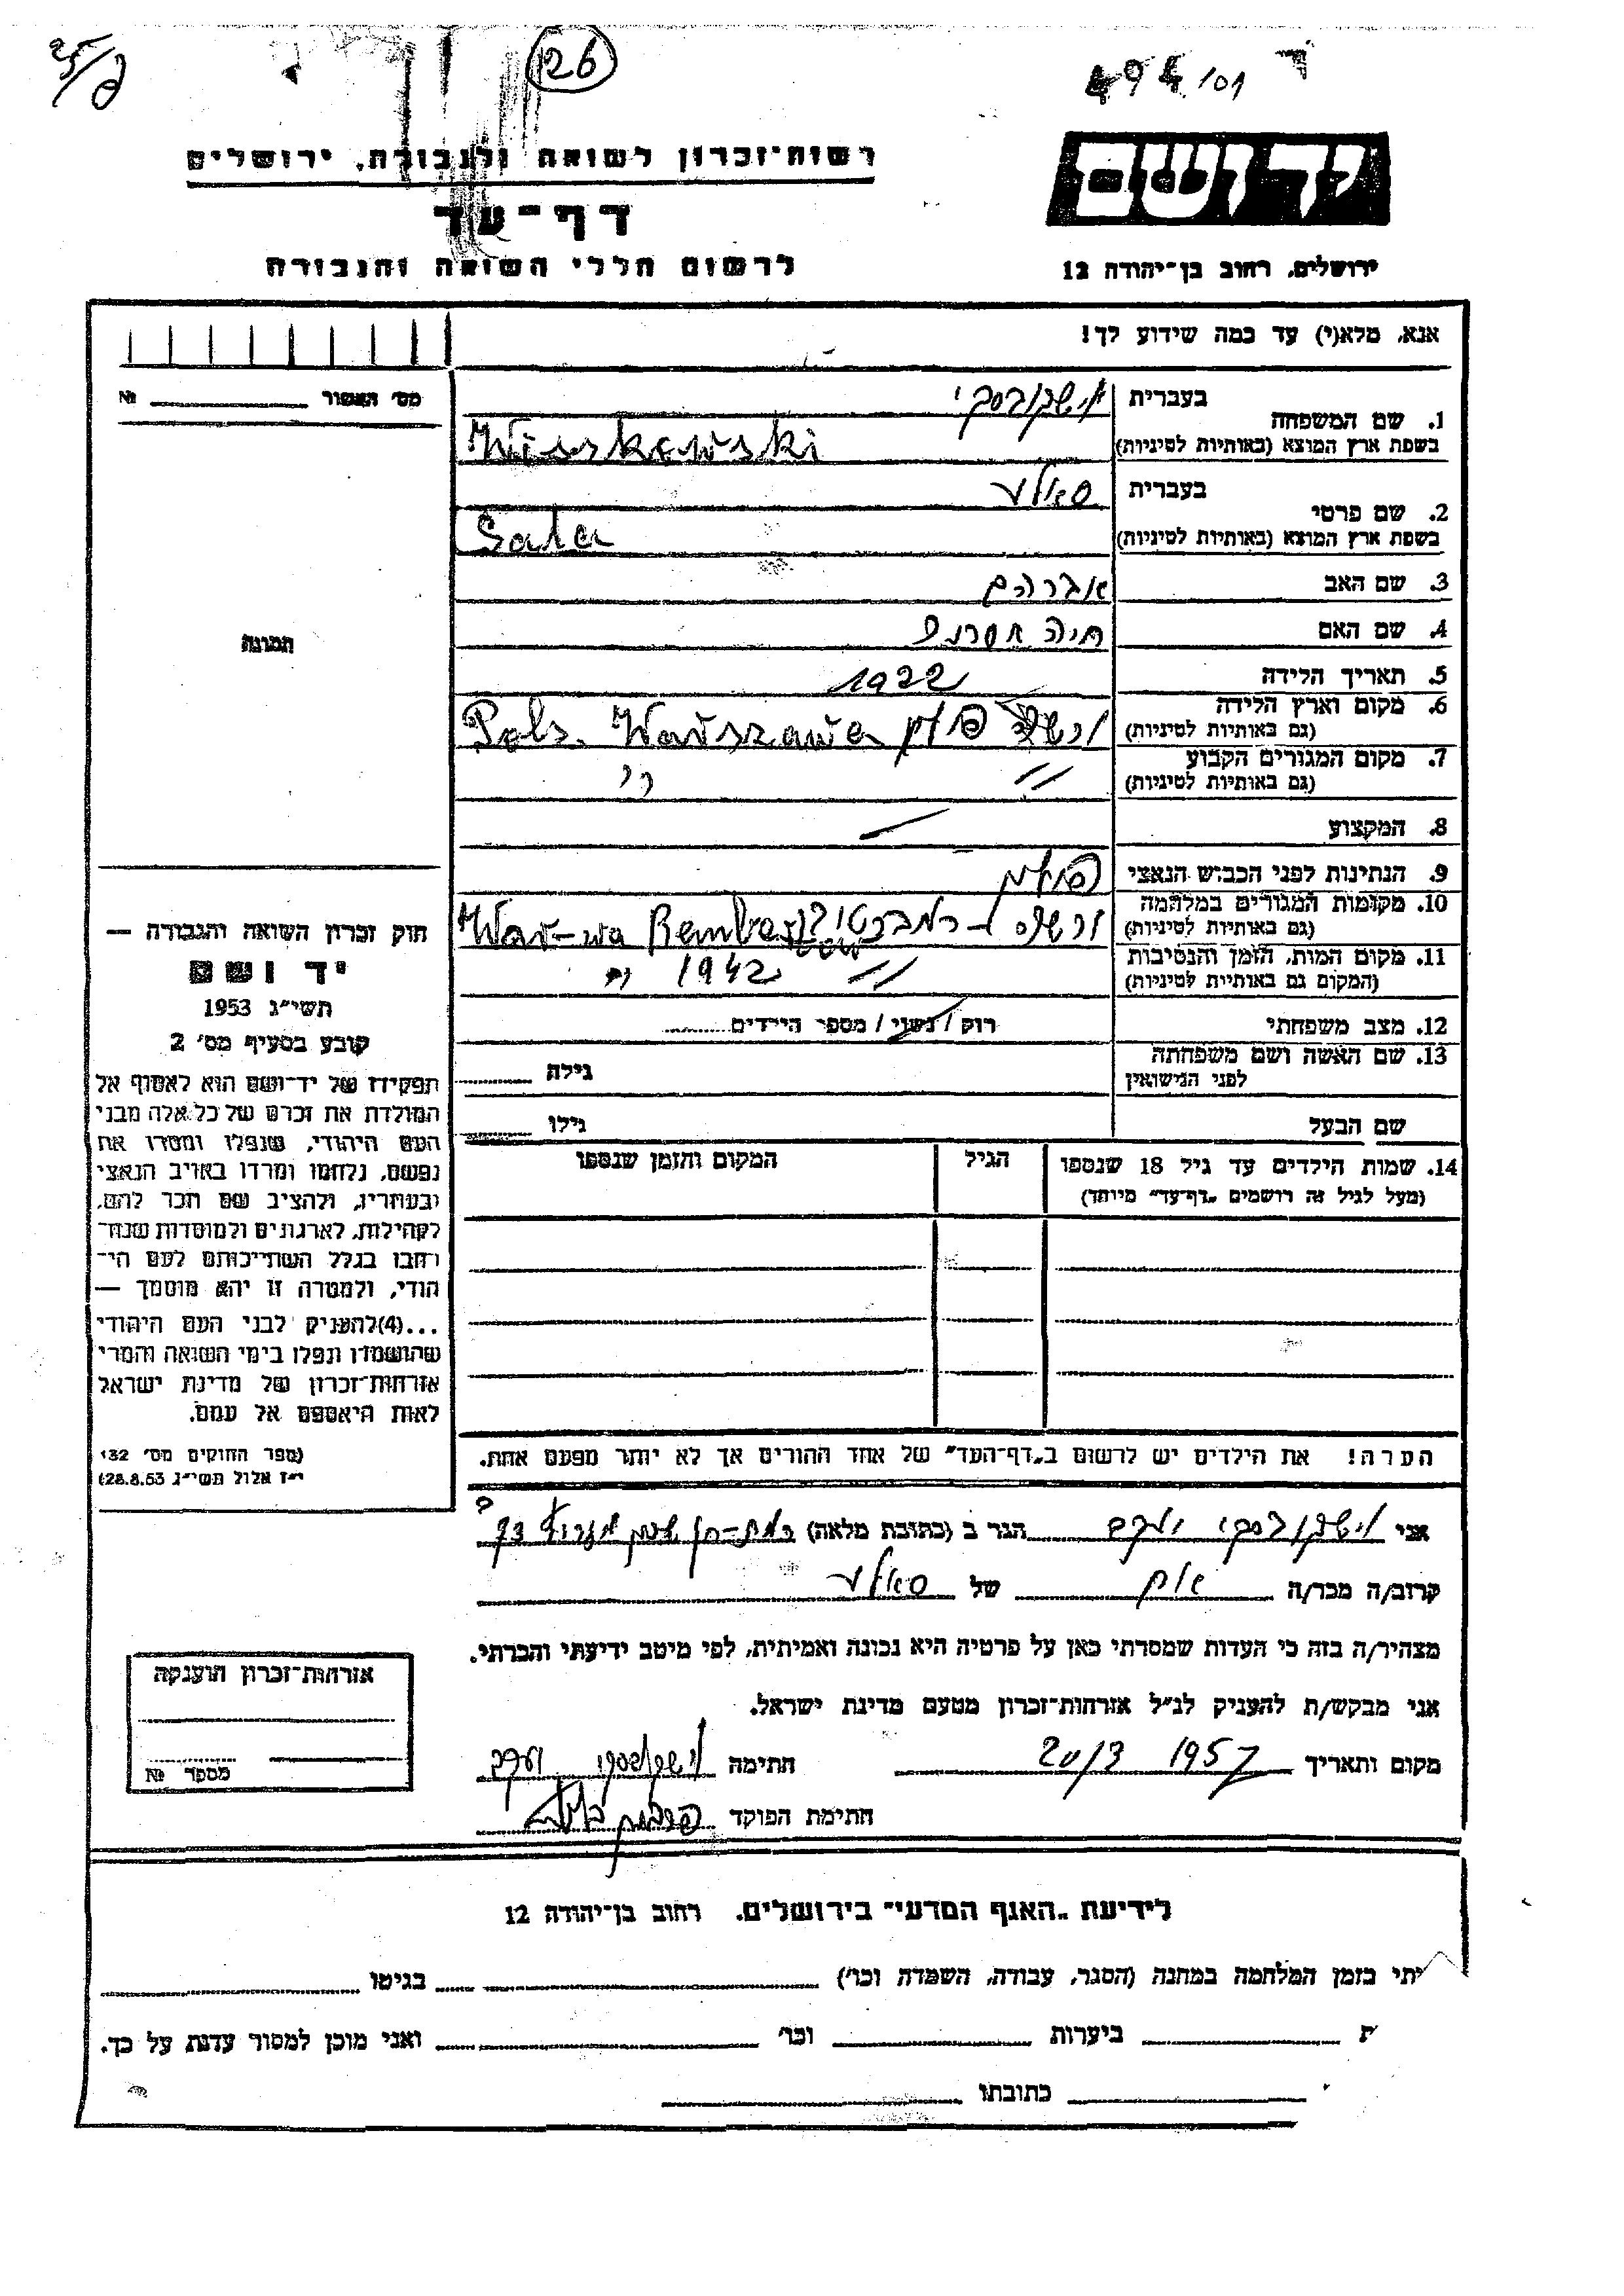 26
494/01
רשות-זכרון לשואה ולגבורה, ירושלים
יד ושם
דף-עד
לרשום חללי השואה והגבורה
ירושלים, רחוב בן-יהודה 12
אנא, מלא(י) עד כמה שידוע לך!
מס' האשור № 
1. שם המשפחה בעברית וישקובסקי
בשפת ארץ המוצא (באותיות לטיניות) Wisskowski
2. שם פרטי בעברית סאלע
בשפת ארץ המוצא (באותיות לטיניות) Sala
3. שם האב אברהם
4. שם האם חיה
5. תאריך הלידה 1922
6. מקום וארץ הלידה
(גם באותיות לטיניות) ורשה פולין Warszawa Pols.
7. מקום המגורים הקבוע
(גם באותיות לטיניות) " "
8. המקצוע —
9. הנתינות לפני הכבוש הנאצי פולין
10. מקומות המגורים במלחמה
(גם באותיות לטיניות) ורשה - רמברטוב War-wa
11. מקום המות, הזמן והנסיבות
(המקום גם באותיות לטיניות) " 1942 "
12. מצב משפחתי רווק / נשוי / מספר הילדים
13. שם האשה ושם משפחתה
לפני הנישואין גילה
שם הבעל גילו
14. שמות הילדים עד גיל 18 שנספו הגיל המקום והזמן שנספו
(מעל לגיל זה רושמים "דף-עד" מיוחד)
הערה! את הילדים יש לרשום ב"דף-העד" של אחד ההורים אך לא יותר מפעם אחת.
תמונה
חוק זכרון השואה והגבורה —
יד ושם
תשי"ג 1953
קובע בסעיף מס' 2
תפקידו של יד-ושם הוא לאסוף אל
המולדת את זכרם של כל אלה מבני
העם היהודי, שנפלו ומסרו את
נפשם, נלחמו ומרדו באויב הנאצי
ובעוזריו, ולהציב שם וזכר להם,
לקהילות, לארגונים ולמוסדות שנח-
רבו בגלל השתייכותם לעם הי-
הודי, ולמטרה זו יהא מוסמך —
...(4) להעניק לבני העם היהודי
שהושמדו ונפלו בימי השואה והמרי
אזרחות-זכרון של מדינת ישראל
לאות היאספם אל עמם.
(ספר החוקים מס' 132
י"ז אלול תשי"ג 28.8.53)
אני וישקובסקי יעקב הגר ב (כתובת מלאה) רמת-גן
קרוב/ה מכר/ה אח של סאלע
מצהיר/ה בזה כי העדות שמסרתי כאן על פרטיה היא נכונה ואמיתית, לפי מיטב ידיעתי והכרתי.
אני מבקש/ת להעניק לנ"ל אזרחות-זכרון מטעם מדינת ישראל.
מקום ותאריך 20/3 1957 חתימה וישקובסקי יעקב
חתימת הפוקד
אזרחות-זכרון הוענקה
מספר №
לידיעת "האגף המדעי" בירושלים, רחוב בן-יהודה 12
יתי בזמן המלחמה במחנה (הסגר, עבודה, השמדה וכו') בגיטו
ת ביערות וכו' ואני מוכן למסור עדות על כך.
כתובתו